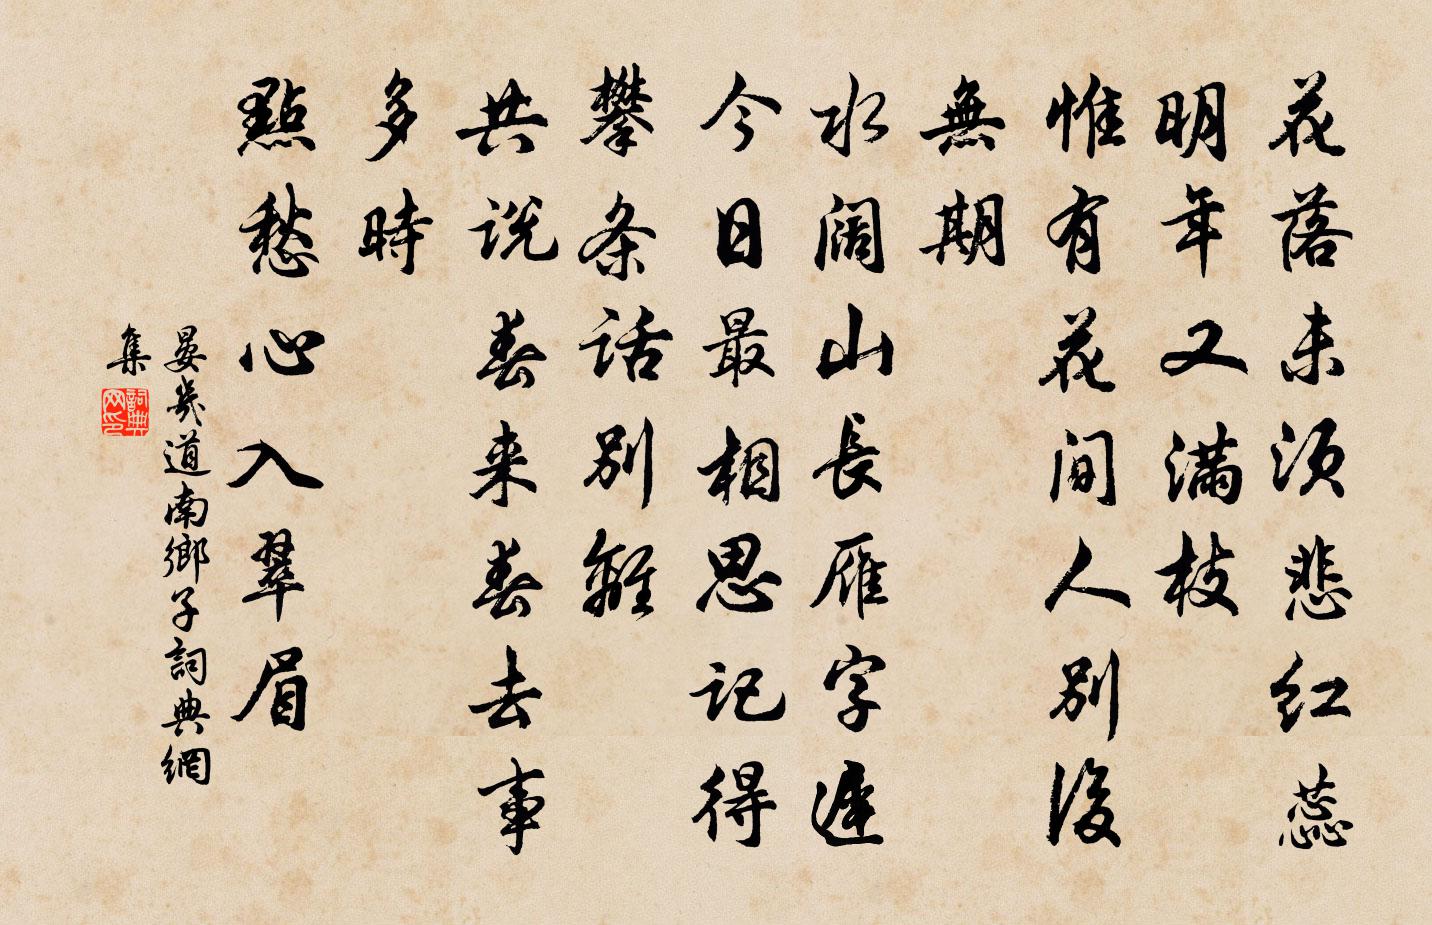 花落未须悲红蕊
明年又满枝
惟有花间人别後
無期
水阔山長雁字遲
今日最相思记得
攀条话别離
共说春来春去事
多時
點愁心入翠眉
晏幾道南鄉子詞典網
集
詞典网印